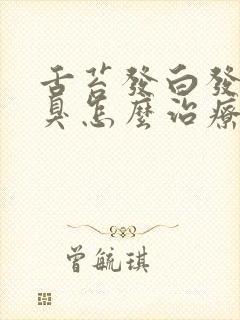 舌苔發白發
臭怎麼治療
曾毓琪